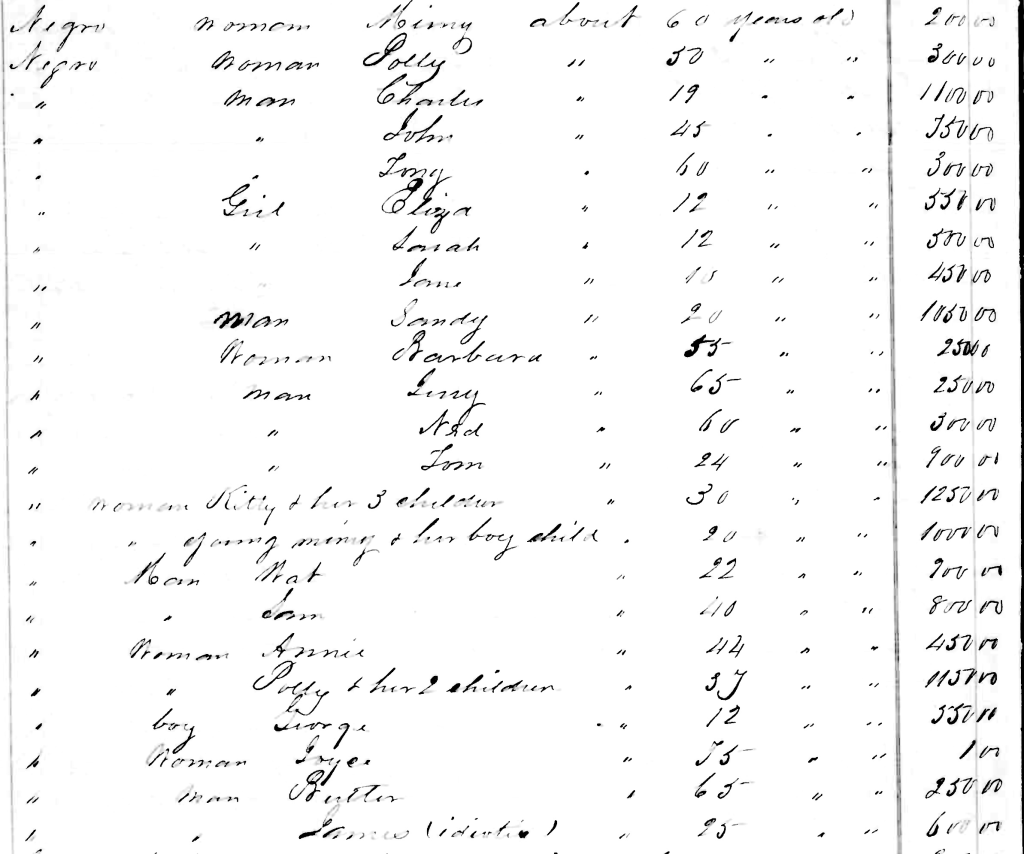 Negro woman Mimy about 60 years old 200 00
Negro Woman Polly " 50 " " 300 00
" man Charles " 19 " " 1100 00
" " John " 45 " " 750 00
" " Tony " 60 " " 300 00
" Girl Eliza " 12 " " 550 00
" " Sarah " 12 " " 500 00
" Jane " 10 " " 450 00
" man Sandy " 20 " " 1050 00
" Woman Barbara " 55 " " 250 00
" man " 65 " " 250 00
" " Ned " 60 " " 300 00
" " Tom " 24 " " 900 00
" woman Kitty & her 3 children " 30 " " 1250 00
" " young mimy & her boy child " 20 " " 1000 00
" Man Wat " 22 " " 900 00
" " Sam " 40 " " 800 00
" Woman Annie " 44 " " 450 00
" " Polly & her 2 children " 37 " " 1150 00
" boy George " 12 " " 550 00
" Woman Joyce " 75 " " 1 00
" man " 65 " " 250 00
" " James (idiotic) " 25 " " 600 00